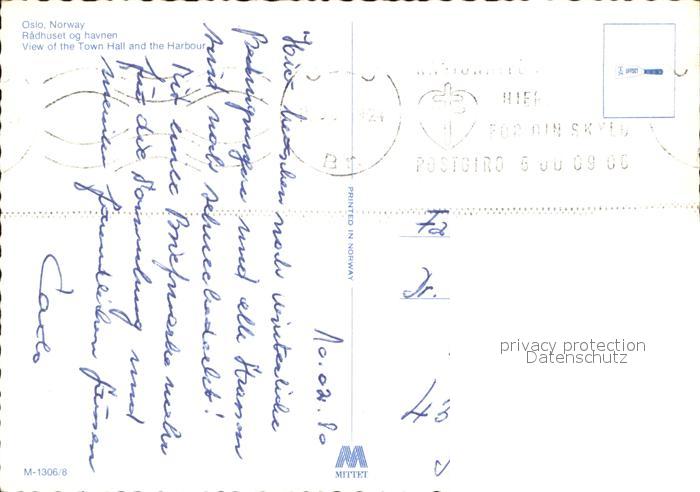 Oslo, Norway
Rådhuset og havnen
View of the Town Hall and the Harbour
HIER
FOR DIN SKYLD
POSTGIRO 6 00 09 00
OFFSET
PRINTED IN NORWAY
10.02.80
Hier herrschen noch winterliche
Bedingungen und alle Strassen
sind noch schneebedeckt!
Mit einer Briefmarke mehr
für die Sammlung und
meinen freundlichen Grüssen
Carlo
Fa
Dr.
43
privacy protection
Datenschutz
M-1306/8
MITTET